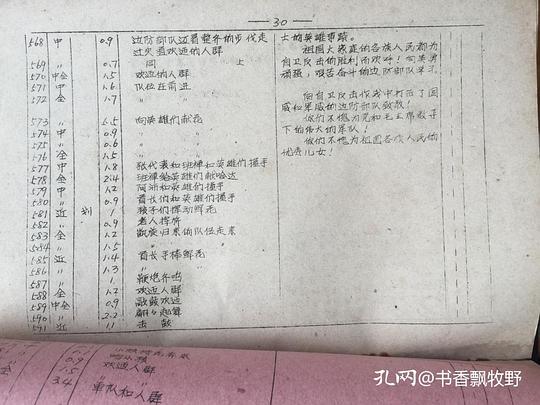 —30—
568 中 0.9 边防部队迈着整齐的步伐走
过夹道欢迎的人群
569 〃 0.7 同 上
570 中全 1.5 欢迎的人群
571 中 1.6 队伍在前进
572 全 1.7 〃
573 〃 5.5 向英雄们献花
574 中 0.9 〃
575 〃 0.6 〃
576 全 1.5 〃
577 中 1.8 张代表和班禅和英雄们握手
578 全 2.4 班禅给英雄们献哈达
579 中 1.2 阿沛和英雄们握手
580 〃 0.9 首长们和英雄们握手
581 近 划 1 孩子们挥动鲜花
582 〃 0.9 老人挥
583 全 1.2 凯旋归来的队伍走来
584 〃 1.5 〃
585 近 1.4 首长手捧鲜花
586 〃 1.3 〃
587 〃 1 鞭炮齐鸣
588 全 1.2 欢迎人群
589 中全 0.9 敲鼓欢迎
590 〃 2.2 翩翩起舞
591 近 1.1 击 鼓
士的英雄事跡。
祖国大家庭的各族人民都为
自卫反击的胜利而欢呼!向英勇
顽强、艰苦奋斗的边防部队
向自卫反击作战中打出了国
威和军威的边防部队致敬!
你们不愧为党和毛主席教导
下的伟大的军队!
你们不愧为祖国各族人民的
优秀儿女!
0.9
1.5 欢迎人群
3.4 〃
军队和人群
孔网@书香飘牧野